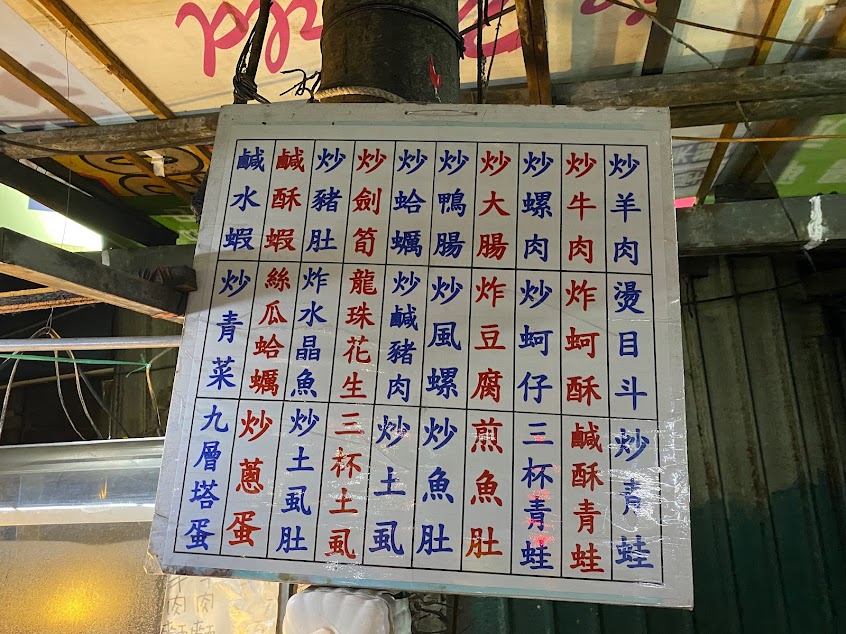 炒羊肉
炒牛肉
炒螺肉
炒大腸
炒鴨腸
炒蛤蠣
炒劍筍
炒豬肚
鹹酥蝦
鹹水蝦
燙目斗
炸蚵酥
炒蚵仔
炸豆腐
炒風螺
炒鹹豬肉
龍珠花生
炸水晶魚
絲瓜蛤蠣
炒青菜
炒青蛙
鹹酥青蛙
三杯青蛙
煎魚肚
炒魚肚
炒土虱
三杯土虱
炒土虱肚
炒蔥蛋
九層塔蛋